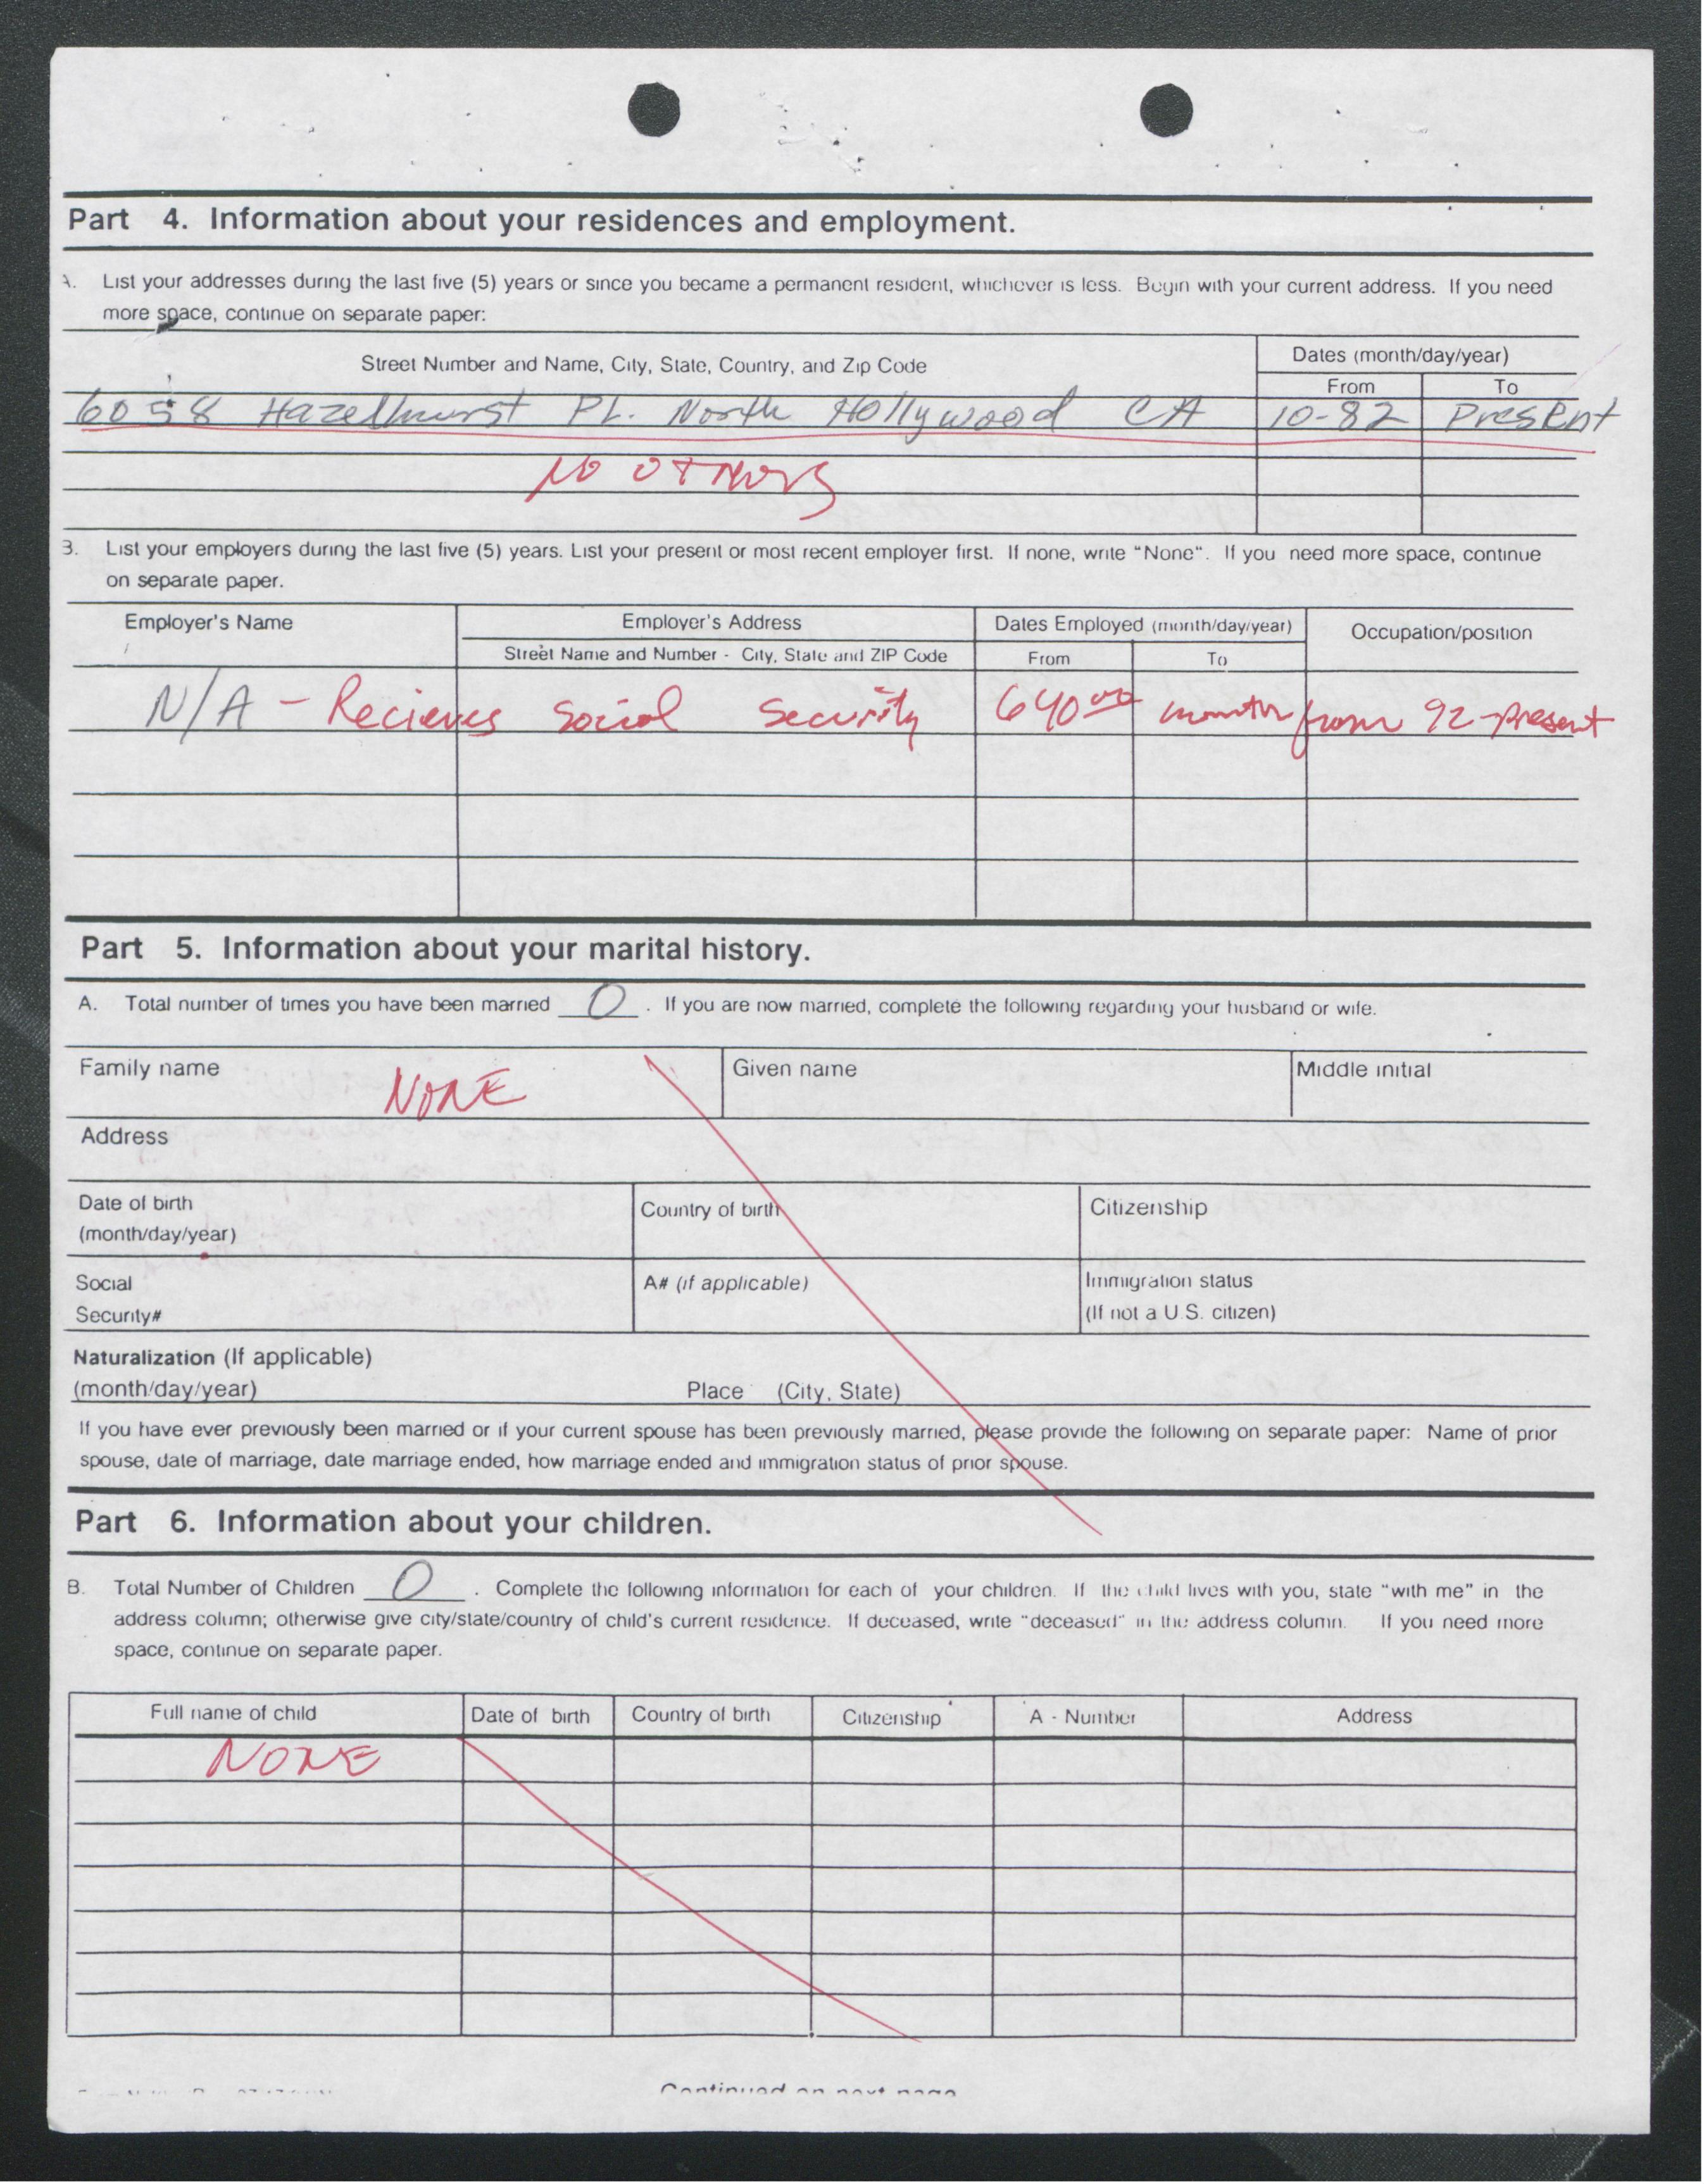 Part 4. Information about your residences and employment.
A. List your addresses during the last five (5) years or since you became a permanent resident, whichever is less. Begin with your current address. If you need
more space, continue on separate paper:
Street Number and Name, City, State, Country, and Zip Code
Dates (month/day/year)
From To
6058 Hazelhurst PL. North Hollywood CA 10-82 Present
NO OTHERS
B. List your employers during the last five (5) years. List your present or most recent employer first. If none, write "None". If you need more space, continue
on separate paper.
Employer's Name Employer's Address Dates Employed (month/day/year) Occupation/position
Street Name and Number - City, State and ZIP Code From To
N/A - Recieves Social Security 640.00 month from 92-present
Part 5. Information about your marital history.
A. Total number of times you have been married 0 . If you are now married, complete the following regarding your husband or wife.
Family name NONE Given name Middle initial
Address
Date of birth Country of birth Citizenship
(month/day/year)
Social A# (if applicable) Immigration status
Security# (If not a U.S. citizen)
Naturalization (If applicable)
(month/day/year) Place (City, State)
If you have ever previously been married or if your current spouse has been previously married, please provide the following on separate paper: Name of prior
spouse, date of marriage, date marriage ended, how marriage ended and immigration status of prior spouse.
Part 6. Information about your children.
B. Total Number of Children 0 . Complete the following information for each of your children. If the child lives with you, state "with me" in the
address column; otherwise give city/state/country of child's current residence. If deceased, write "deceased" in the address column. If you need more
space, continue on separate paper.
Full name of child Date of birth Country of birth Citizenship A - Number Address
NONE
Continued on next page